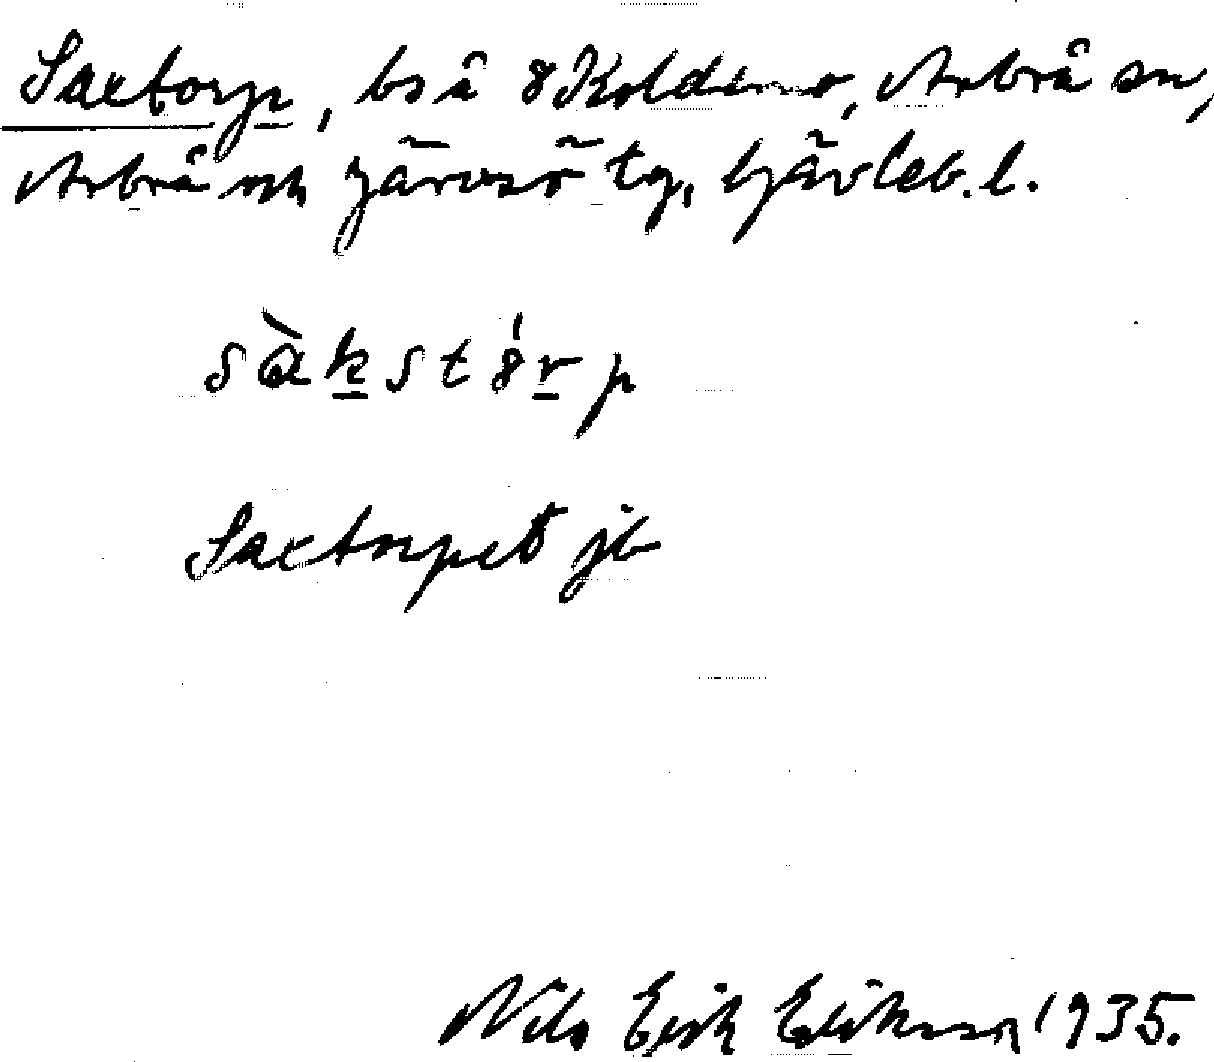 Saxtorp, bs å 8 Koldemo, Arbrå sn,
Arbrå och Järvsö tg, Gävleb. l.
sàkstó̤rp
Saxtorpet jb
Nils Erik Eriksson 1935.